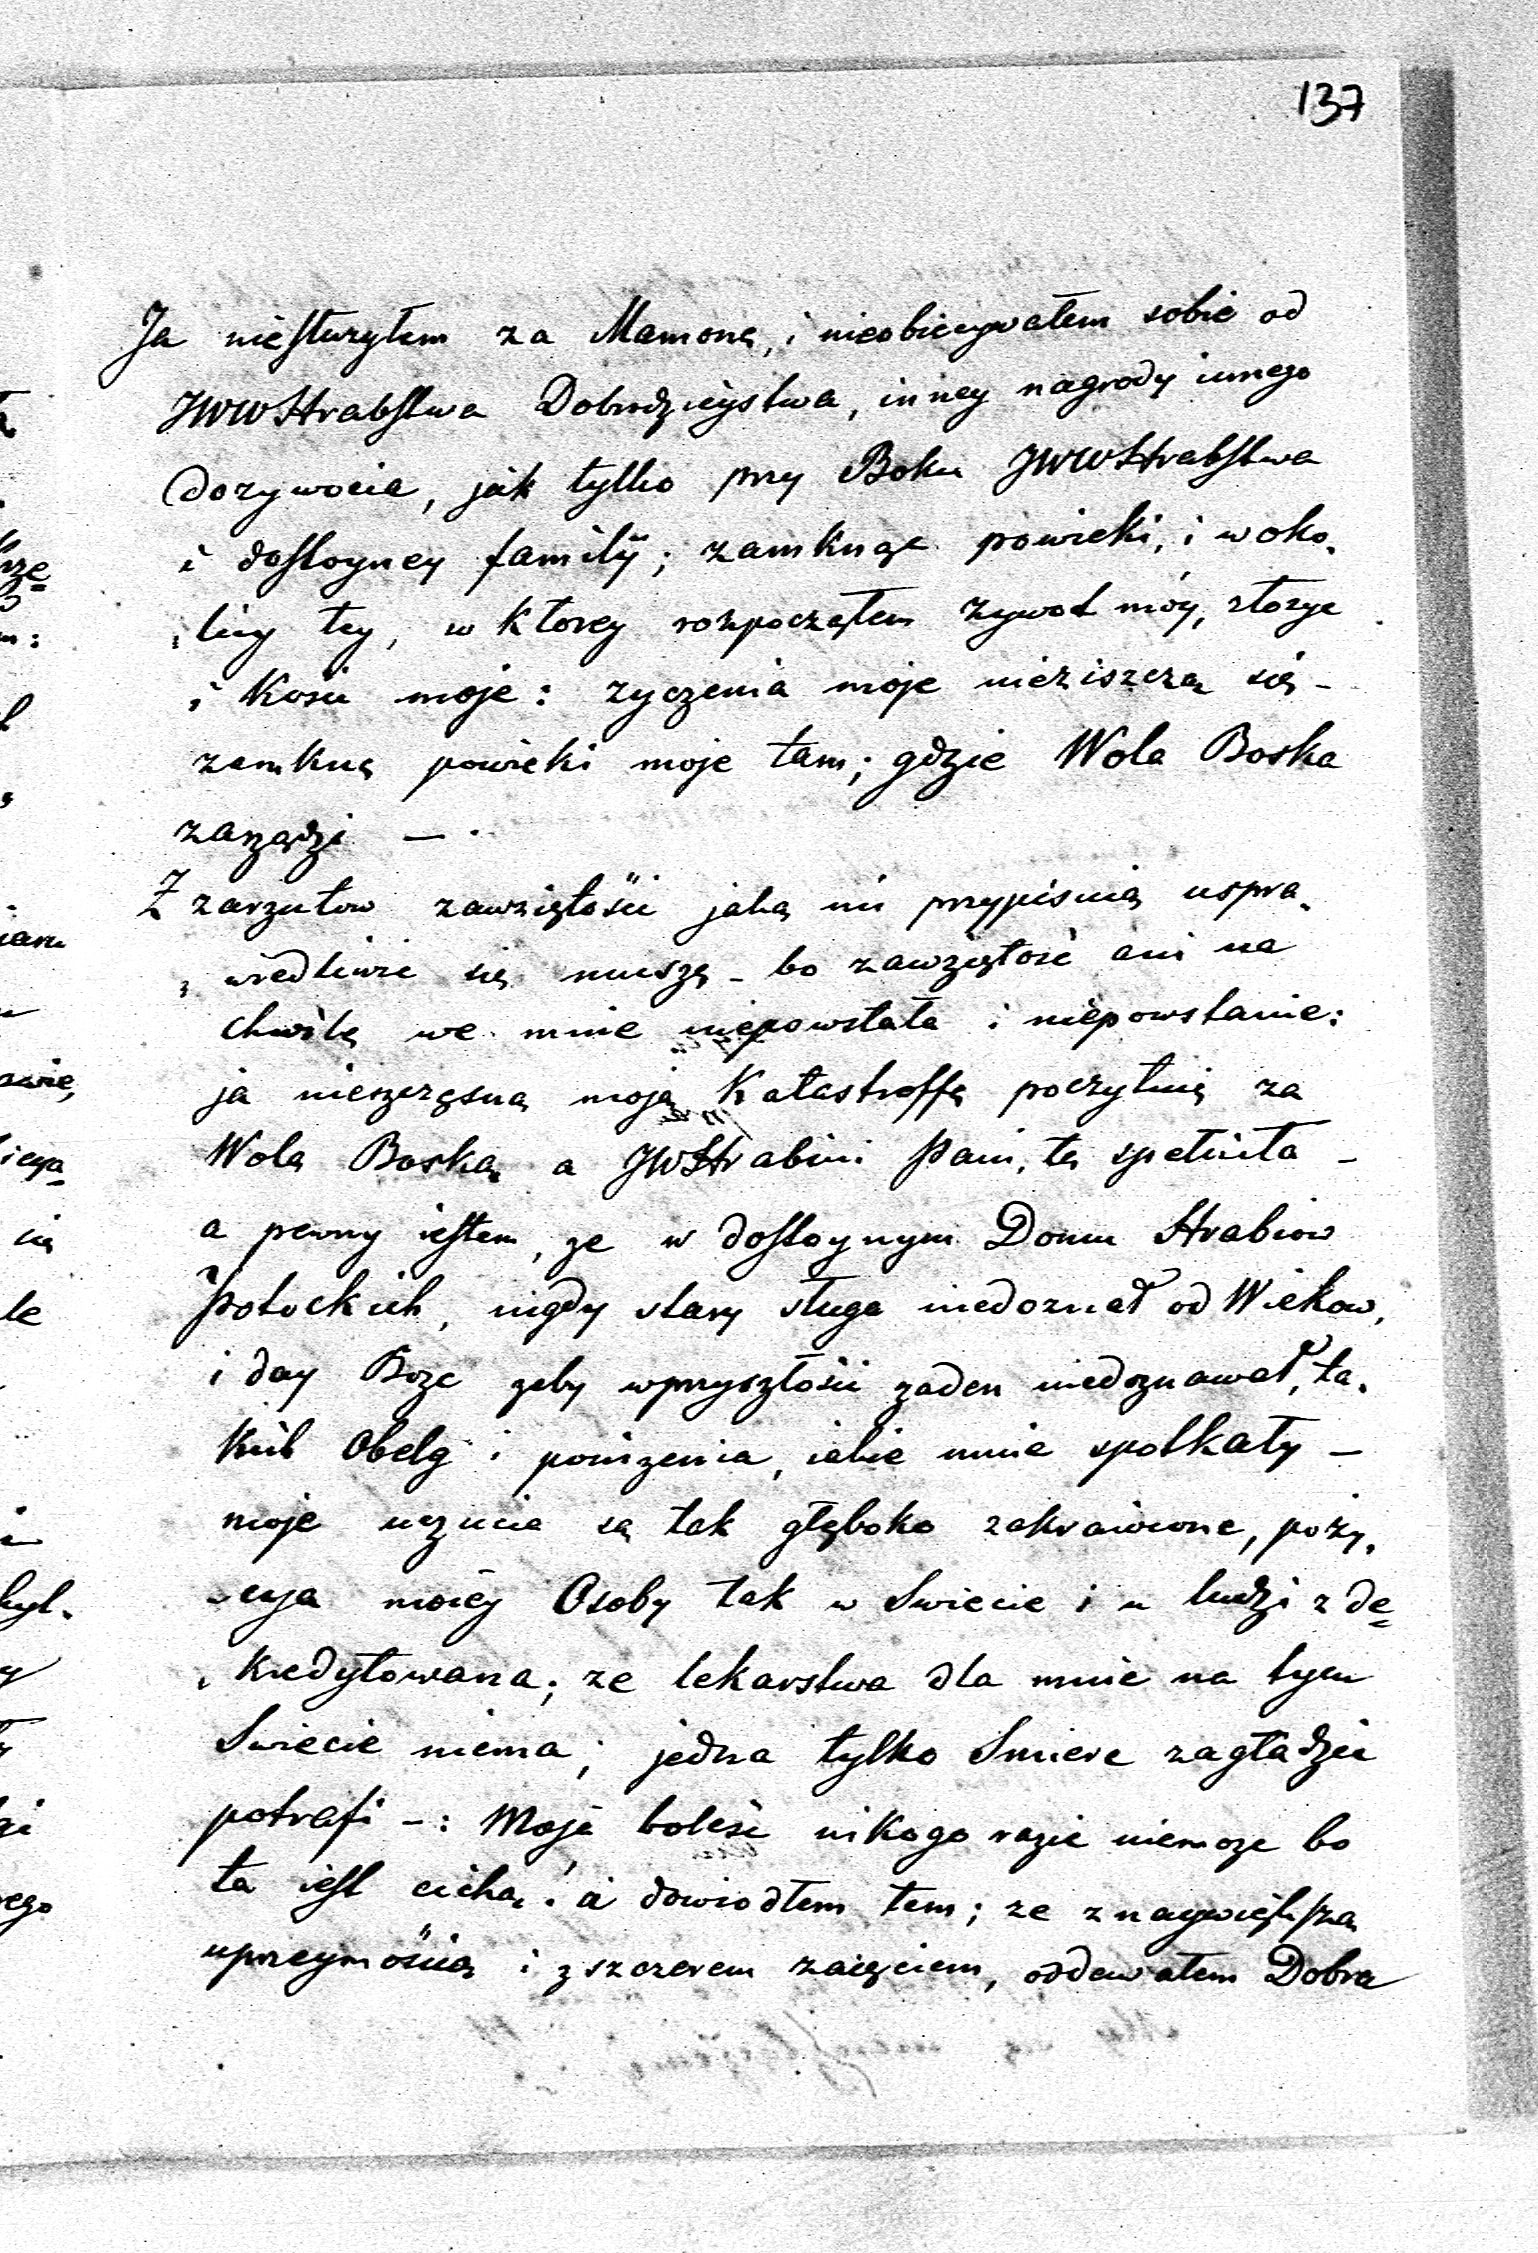 137
Ja niesłuzyłem za Mamonę, i nieobiecywałem sobie od
JWWHrabstwa Dobrodzieystwa, inney nagrody innego
dozywocia, jak tylko przy Boku JWWHrabstwa
i dostoyney familij; zamknąc powieki, i w oko„
„licy tey, w ktorey rozpocząłem zywot móy, złozyc
i Kosci moje: zyczenia moje nieziszczą się –
zamkną powieki moje tam; gdzie Wola Boska
zarządzi — .
Z zarzutow zawziętości jaką mi przypisuią uspra„
„wiedliwic się muszę – bo zawziętośc ani na
chwilę we mnie niepowstała i niepowstanie:
ja nieszczęsną moją Katastroffę poczytuię za
Wolą Boską a JWHrabini Pani, tę spełniła –
a pewny iestem, ze w dostoynym Domu Hrabiow
Potockich, nigdy stary sługa niedoznał od Wiekow,
i day Boze zeby wprzyszłości zaden niedoznawał, ta„
kich Obelg i ponizenia, iakie mnie spotkały –
moje uczucia są tak głęboko zakrwawione, pozy„
„cya moiéy Osoby tak w Swiecie i u ludzi zde=
„kredytowana; ze lekarstwa dla mnie na tym
Swiecie niema; jedna tylko Smierc zagładzic
potrafi –: Moja bolesc nikogo razic niemoze bo
ta iest cichą: a dowiodłem tem; ze z naywiększą
uprzeymością i z szczerem zaięciem, oddawałem Dobra